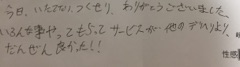 今日、いたれりつくせり、ありがとうございました
いろんな事やってもらって サービスが 他のデリヘルより、
だんぜん良かった!!
性感